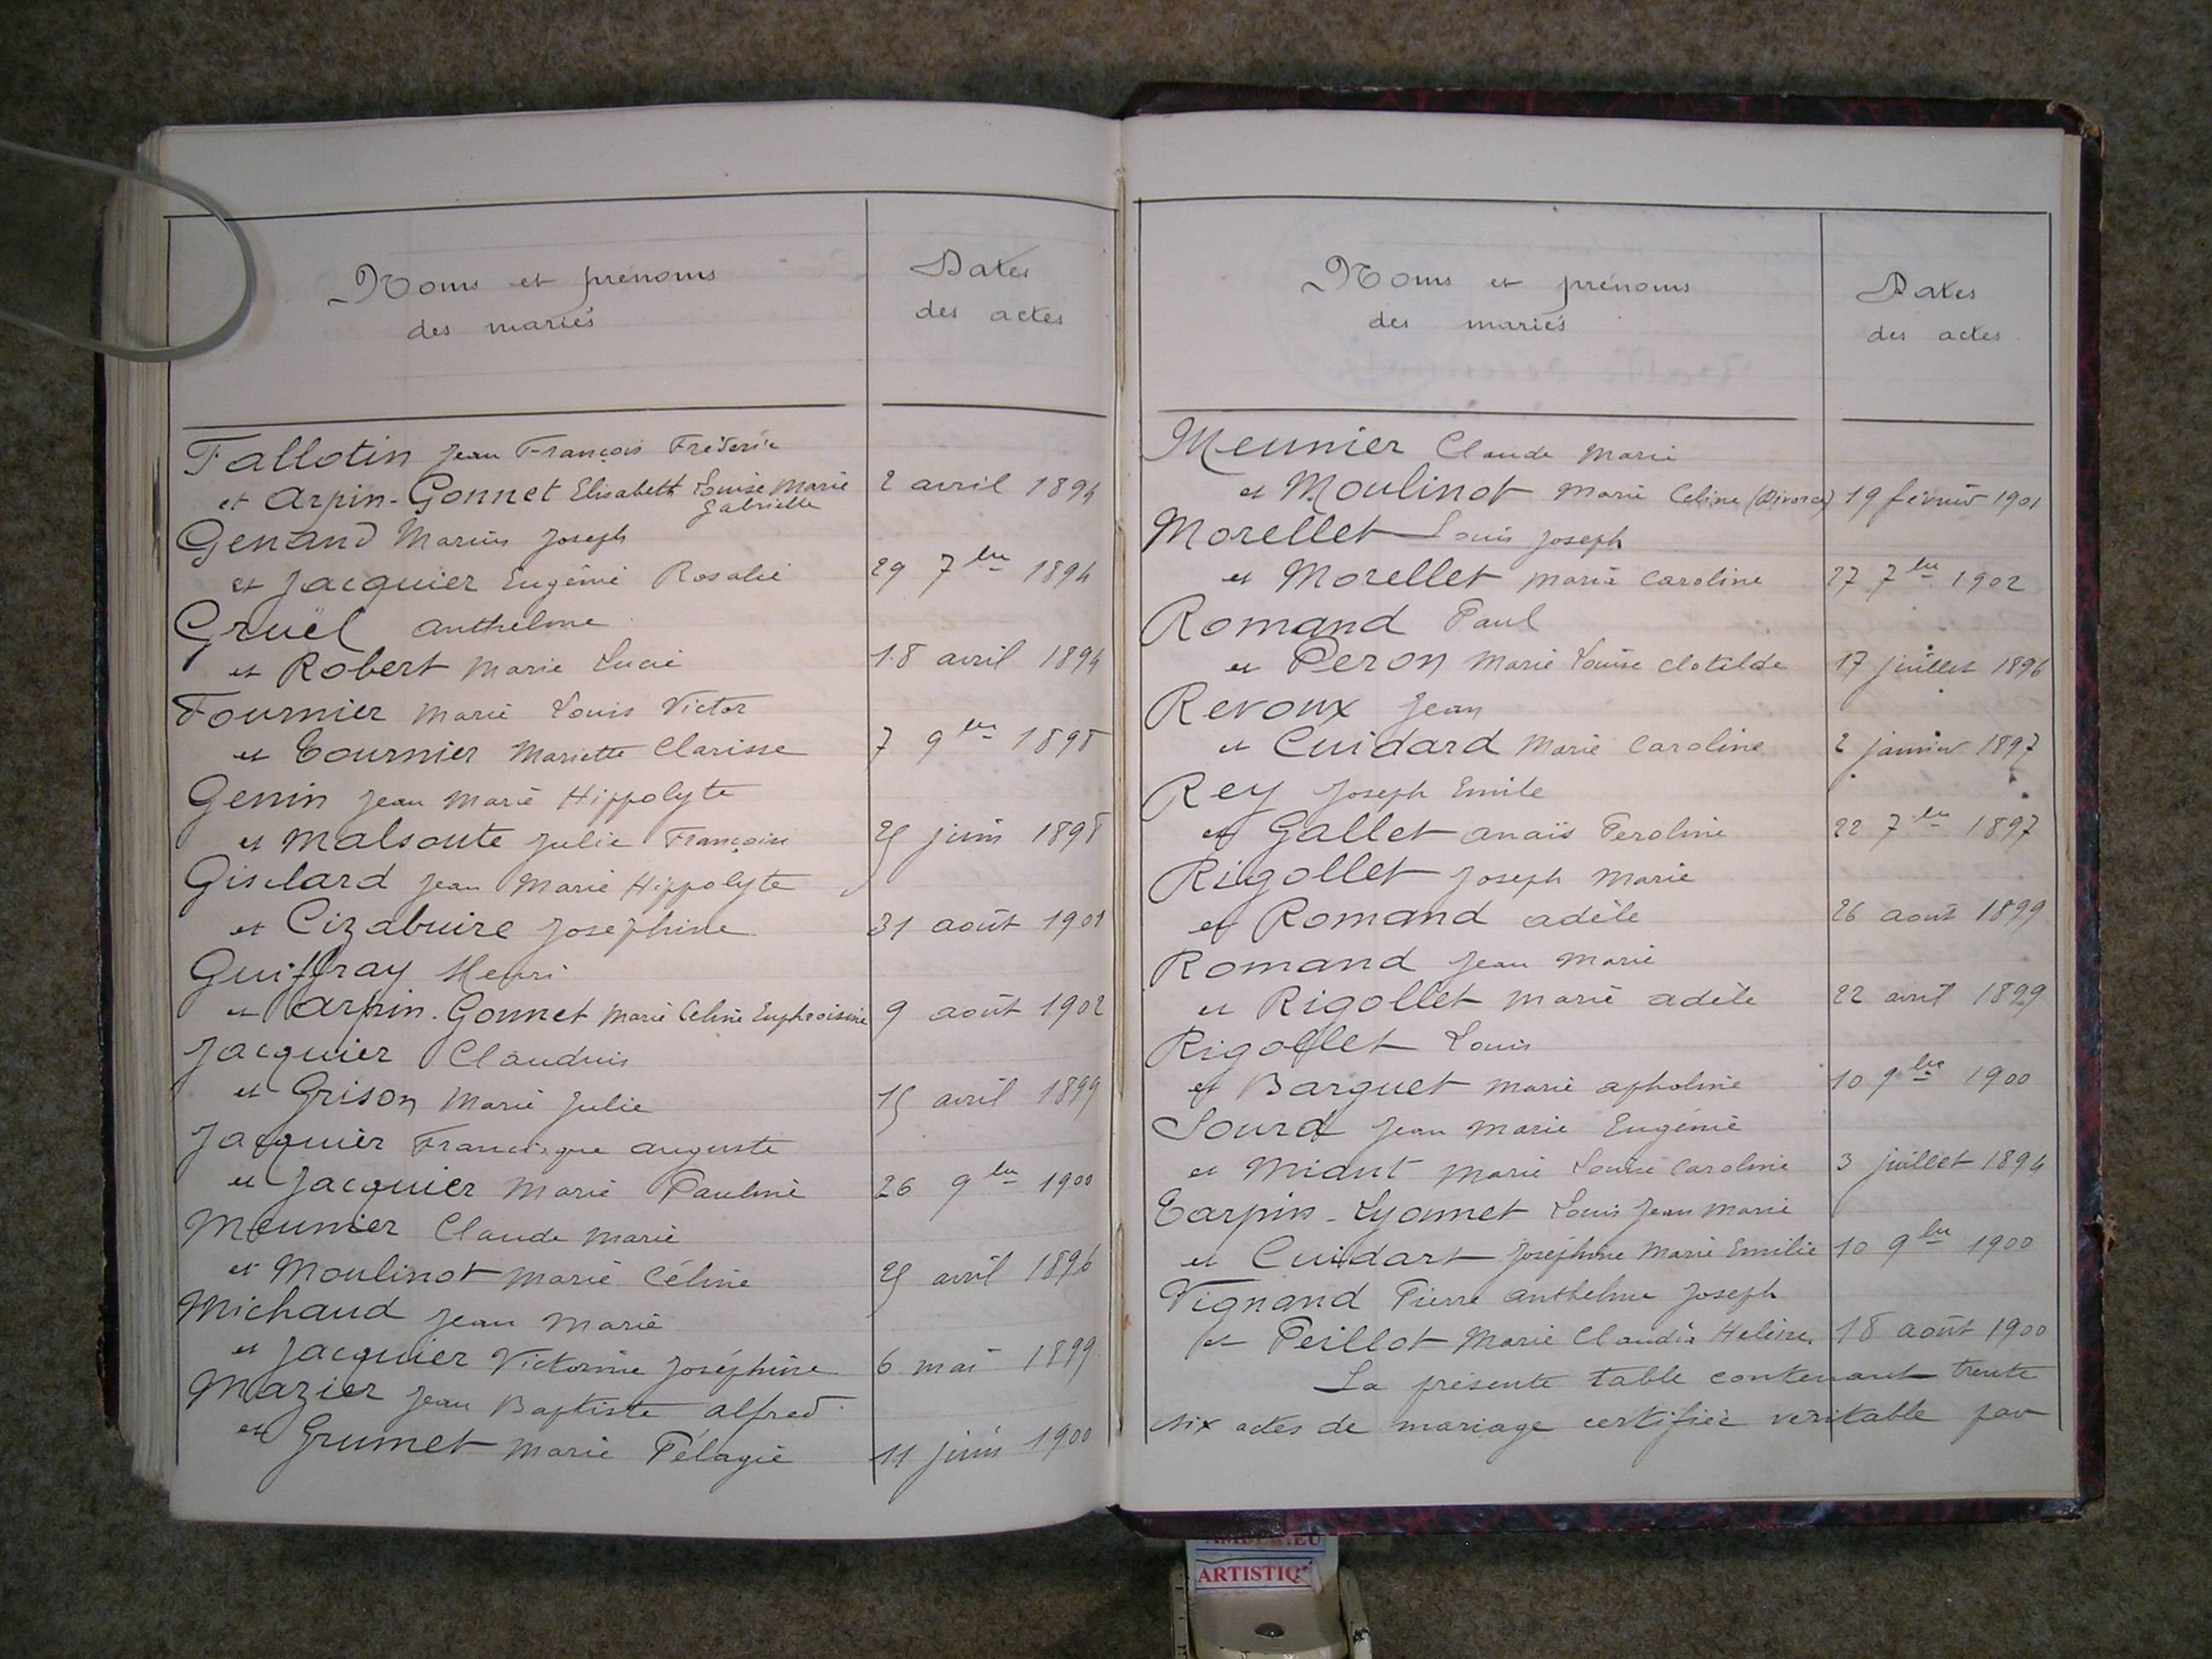 Noms et prénoms
des mariés
Dates
des actes
Fallotin Jean François Fréderic
et Arpin-Gonnet Elisabeth Louise Marie
Gabrielle
2 avril 1894
Genand Marius Joseph
et Jacquier Eugénie Rosalie
29 7bre 1894
Gruël Anthelme
et Robert Marie Lucie
18 avril 1894
Fournier Marie Louis Victor
et Tournier Mariette Clarisse
7 9bre 1898
Genin Jean Marie Hippolyte
et Malsoute Julie Françoise
25 juin 1898
Gisclard Jean Marie Hippolyte
et Cizabuire Joséphine
31 août 1901
Guiffray Henri
et Arpin-Gonnet Marie Celine Euphroisine
9 août 1902
Jacquier Claudius
et Grison Marie Julie
15 avril 1899
Jacquier Francisque Auguste
et Jacquier Marie Pauline
26 9bre 1900
Meunier Claude Marie
et Moulinot Marie Céline
25 avril 1896
Michaud Jean Marie
et Jacquier Victorine Joséphine
6 mai 1899
Mazier Jean Baptiste Alfred
et Grumet Marie Pélagie
11 juin 1900
Noms et prénoms
des mariés
Dates
des actes
Meunier Claude Marie
et Moulinot Marie Celine (Divorce)
19 février 1901
Morellet Louis Joseph
et Morellet Maria Caroline
27 7bre 1902
Romand Paul
et Peron Marie Louise Clotilde
17 juillet 1896
Revoux Jean
et Cuidard Marie Caroline
2 janvier 1897
Rey Joseph Emile
et Gallet Anaïs Peroline
22 7bre 1897
Rigollet Joseph Marie
et Romand Adèle
26 août 1899
Romand Jean Marie
et Rigollet Marie Adèle
22 avril 1899
Rigollet Louis
et Barguet Marie Apholine
10 9bre 1900
Sourd Jean Marie Eugénie
et Miant Marie Louise Caroline
3 juillet 1894
Tarpin-Lyonnet Louis Jean Marie
et Cuidart Joséphine Marie Emilie
10 9bre 1900
Vignand Pierre Anthelme Joseph
et Peillot Marie Claudia Helène
18 août 1900
La présente table contenant trente
six actes de mariage certifiée véritable par
ARTISTIQ